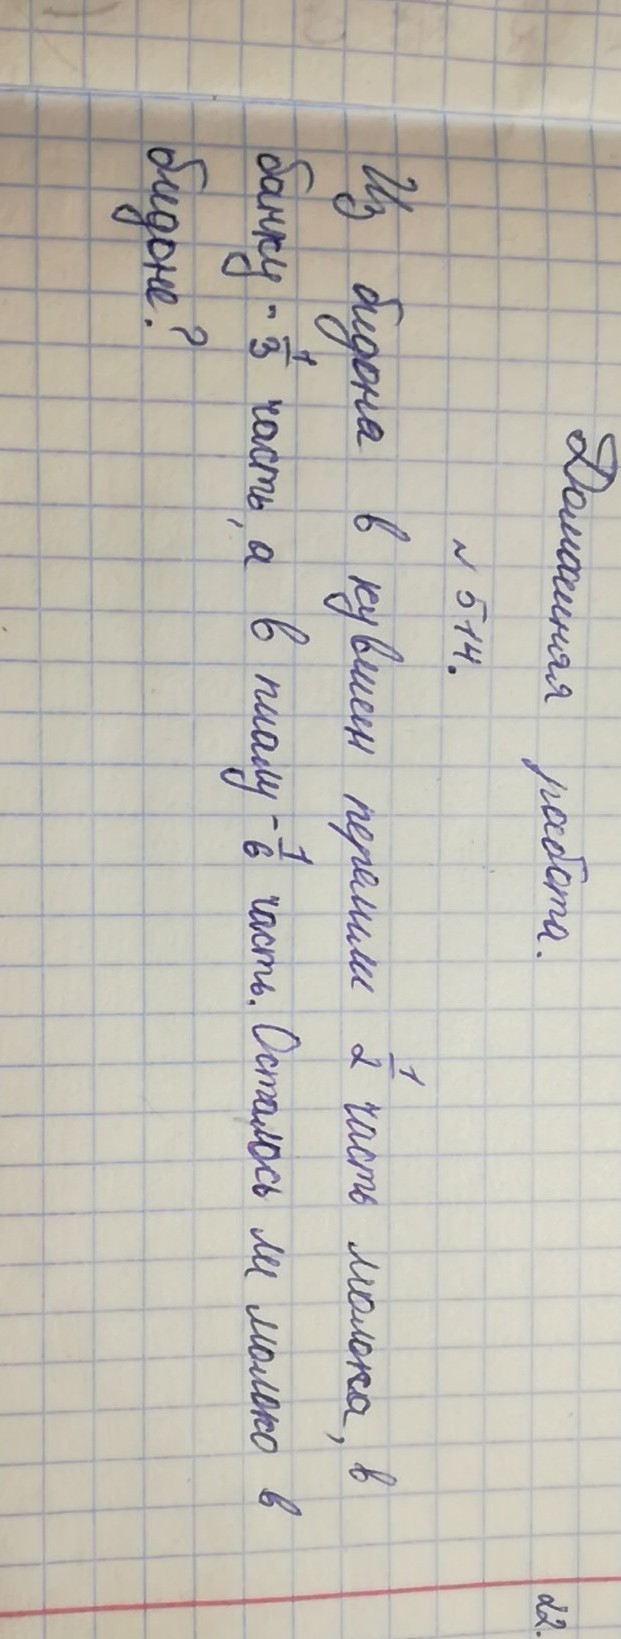 22.
Домашняя работа.
№ 514.
Из бидона в кувшин перелили 1/2 часть молока, в
банку - 1/3 часть, а в пиалу - 1/6 часть. Осталось ли молоко в
бидоне?